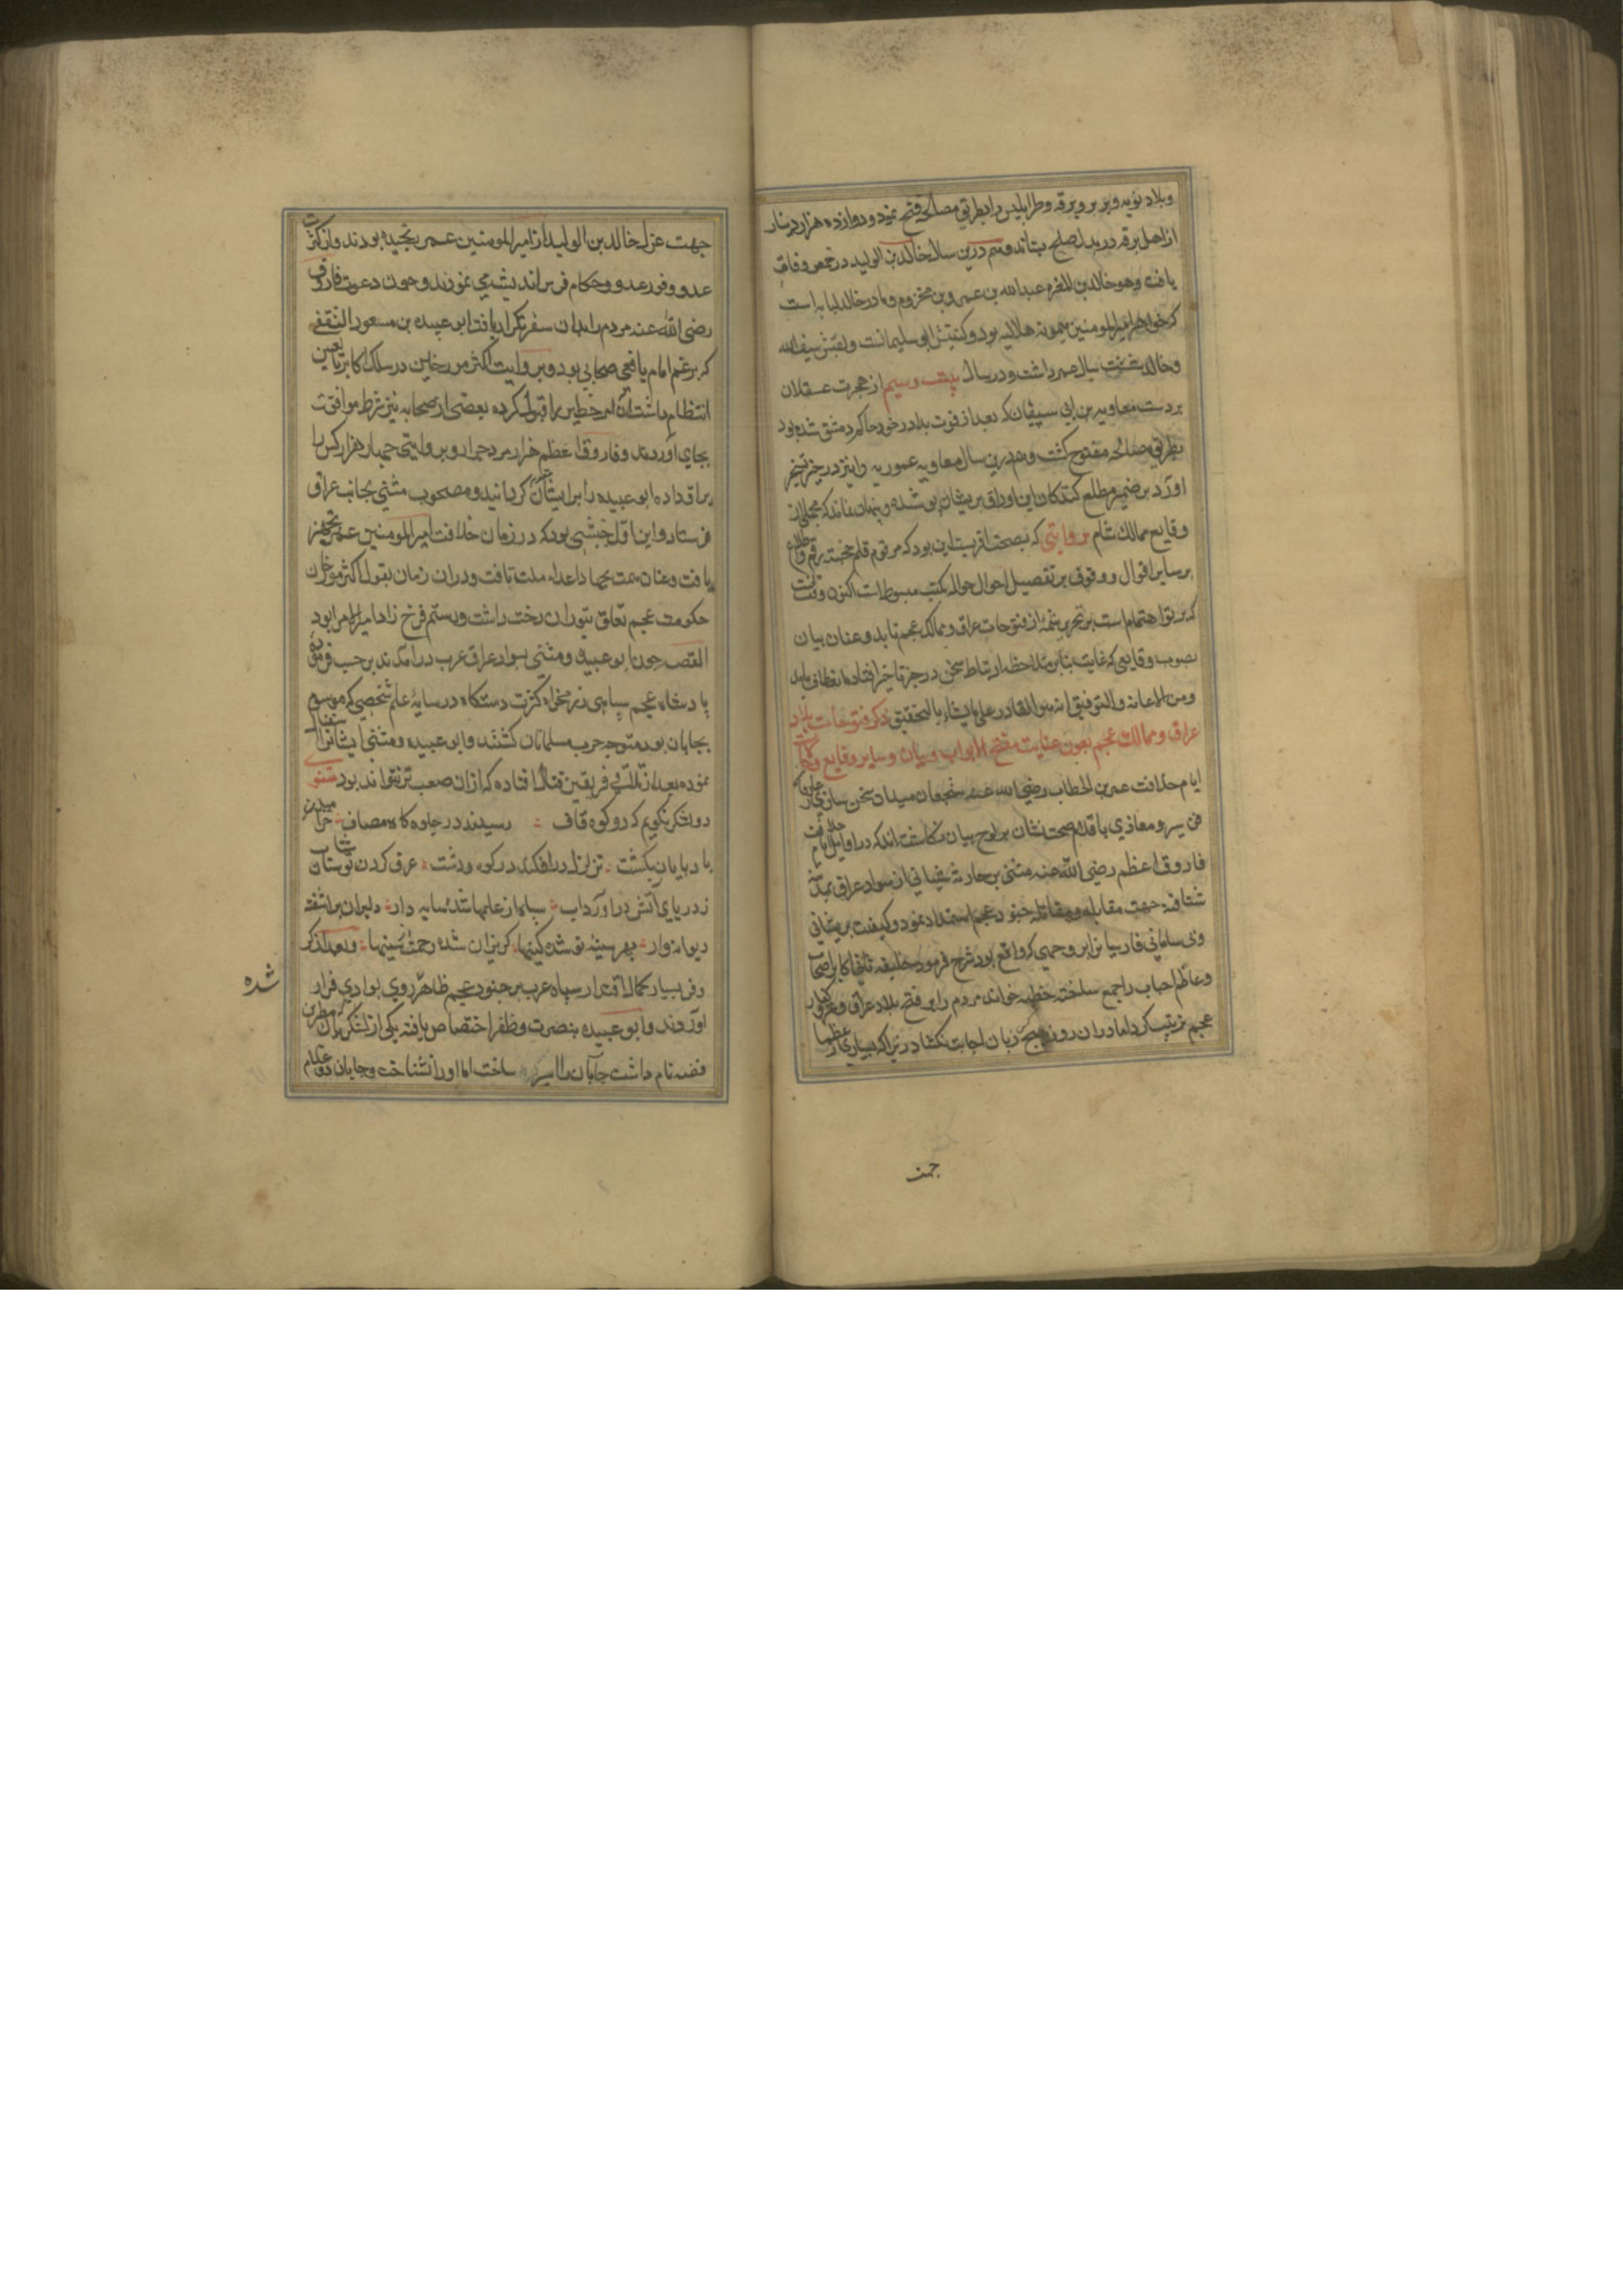 وبلاد نوبه و بربر و برقه و طرابلس را بطریق مصالحه فتح نمود و دوازده هزار دینار
از اهل برقه در بدل صلح بستاند و هم درین سال خالد بن الولید در حمص وفات
یافت وهو خالد بن المغیره عبدالله بن عمرو بن مخزوم و مادر خالد لبابه است
که خواهر امیرالمومنین میمونه هلالیه بود و کنیتش ابی سلیمانست و لقبش سیف الله
و خالد سال عمر داشت و در سال از هجرت عسقلان
بر دست معاویه بن ابی سفیان که بعد از فوت برادر خود حاکم دمشق شده بود
بطریق مصالحه مفتوح کشت و هم درین سال معاویه عموریه را نیز در حیز تسخیر
اورد بر ضمیر مطلع کنندکان این اوراق پریشان پوشیده و پنهان نماند که مجملی از
وقایع ممالک شام بروایتی که بصحت اقربست این بود که مرقوم قلم خجسته رقم
بر سایر اقوال و وقوف بر تفصیل احوال حواله بکتب مبسوطات اکنون وقت
که پرتو اهتمام است بر تحریر شمه از فتوحات عراق و ممالک عجم تابد و عنان بیان
بصوب وقایعی که غایت بنابر ملاحظه ارتباط سخن در حیز تاخیر افتاده انعطاف یابد
ومن الاعانه والتوفیق انه هو القادر علی مایشاء بالتحقیق ذکر فتوحات بلاد
عراق و ممالک عجم بعون عنایت مفتح الابواب و بیان و سایر وقایع و
ایام خلافت عمر بن الخطاب رضی الله عنه شجعان میدان سخن سازی
فن سیر و مغازی با قلام صحت نشان بر لوح بیان نکاشته اند که در اوایل ایام خلافت
فاروق اعظم رضی الله عنه مثنی بن حارثه شیبانی از سواد عراق بمدینه
شتافته جهت مقابله و مقاتله جنود عجم استمداد نمود و کیفیت پریشانی
وبی سامانی فارسیان را بر وجهی که واقع بود شرح فرمود خلیفه ثانی اکابر اصحاب
و اعاظم احباب را جمع ساخته خطبه خواند مردم را بر فتح بلاد عراق و غزو کفار
عجم ترتیب کرد اما در ان روز هیچ کس زبان اجابت نکشاد زیرا که بسیاری از عظما
جهت
جهت عزل خالد بن الولید از امیرالمومنین عمر رنجیده بودند و از کثرت
عدد و وفور عدد و حکام فرس اندیشه می نمودند و چون دعوت فاروق
رضی الله عنه مردم را بدان سفر تکرار یافت ابو عبیده بن مسعود الثقفی
که بزعم امام یافعی صحابی بود و بروایت اکثر مورخان در سلک اکابر تابعین
انتظام داشت آن امر خطیر را قبول کرده بعضی از صحابه نیز شرط موافقت
بجای آوردند و فاروق اعظم هزار مرد جرار و بروایتی چهار هزار کس را
یراق داده ابو عبیده را بر ایشان امیر کردانید و مصحوب مثنی بجانب عراق
فرستاد و این اول جیشی بود که در زمان خلافت امیرالمومنین عمر تجهیز
یافت و عنان همت بجهاد اعداء ملت تافت و در ان زمان بقول اکثر مورخان
حکومت عجم تعلق بتوران دخت داشت و رستم فرخ زاد امیرالامرا بود
القصه چون ابو عبیده و مثنی بسواد عراق عرب درامدند بر حسب فرموده
پادشاه عجم سپاهی کثرت دستکاه در سایۀ علم شخصی که موسوم
بجابان بود متوجه حرب مسلمانان کشتند و ابو عبیده و مثنی ایشانرا استقبال
نموده بعد از تلاقی فریقین قتال افتاد که ازان صعب تر نتواند بود مثنوی
دو لشکر نکویم که دو کوه قاف رسیدند در جلوه کاه مصاف
باد بیابان بکشت تزلزل در افکند در کوه و دشت عرق کردن توسنان
ز دریای آتش در آورد آب سپاه از علمها شده سایه دار دلیران بر آشفته
دیوانه وار بهر سینۀ نو شده کینها کریزان شده رحمت سینها و بعد از کر
وفر بسیار کمال اقتدار سپاه عرب بر جنود عجم ظاهر روی بوادی فرار
شده
اوردند و ابو عبیده بنصرت و ظفر اختصاص یافته یکی از لشکریان که مطر بن
فضه نام داشت جابان را اسیر ساخت اما او را نشناخت و جابان دو غلام